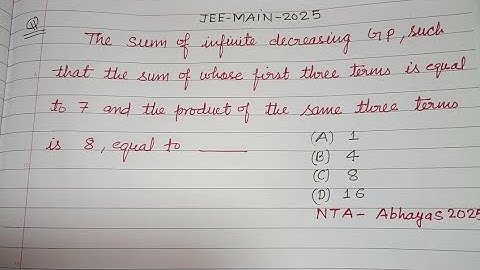 JEE-MAIN-2025
Q) The sum of infinite decreasing G.P, such
that the sum of whose first three terms is equal
to 7 and the product of the same three terms
is 8, equal to ____
(A) 1
(B) 4
(C) 8
(D) 16
NTA- Abhayas 2025